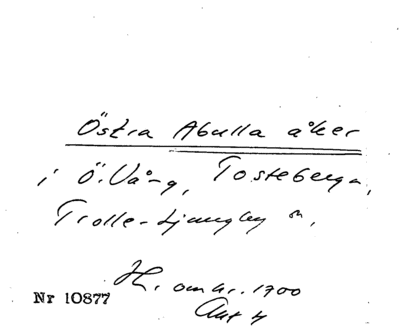 Östra Abulla åker
i Ö. Vång, Tosteberga,
Trolle-Ljungby sn.
H. omkr. 1700
Akt 4
Nr 10877